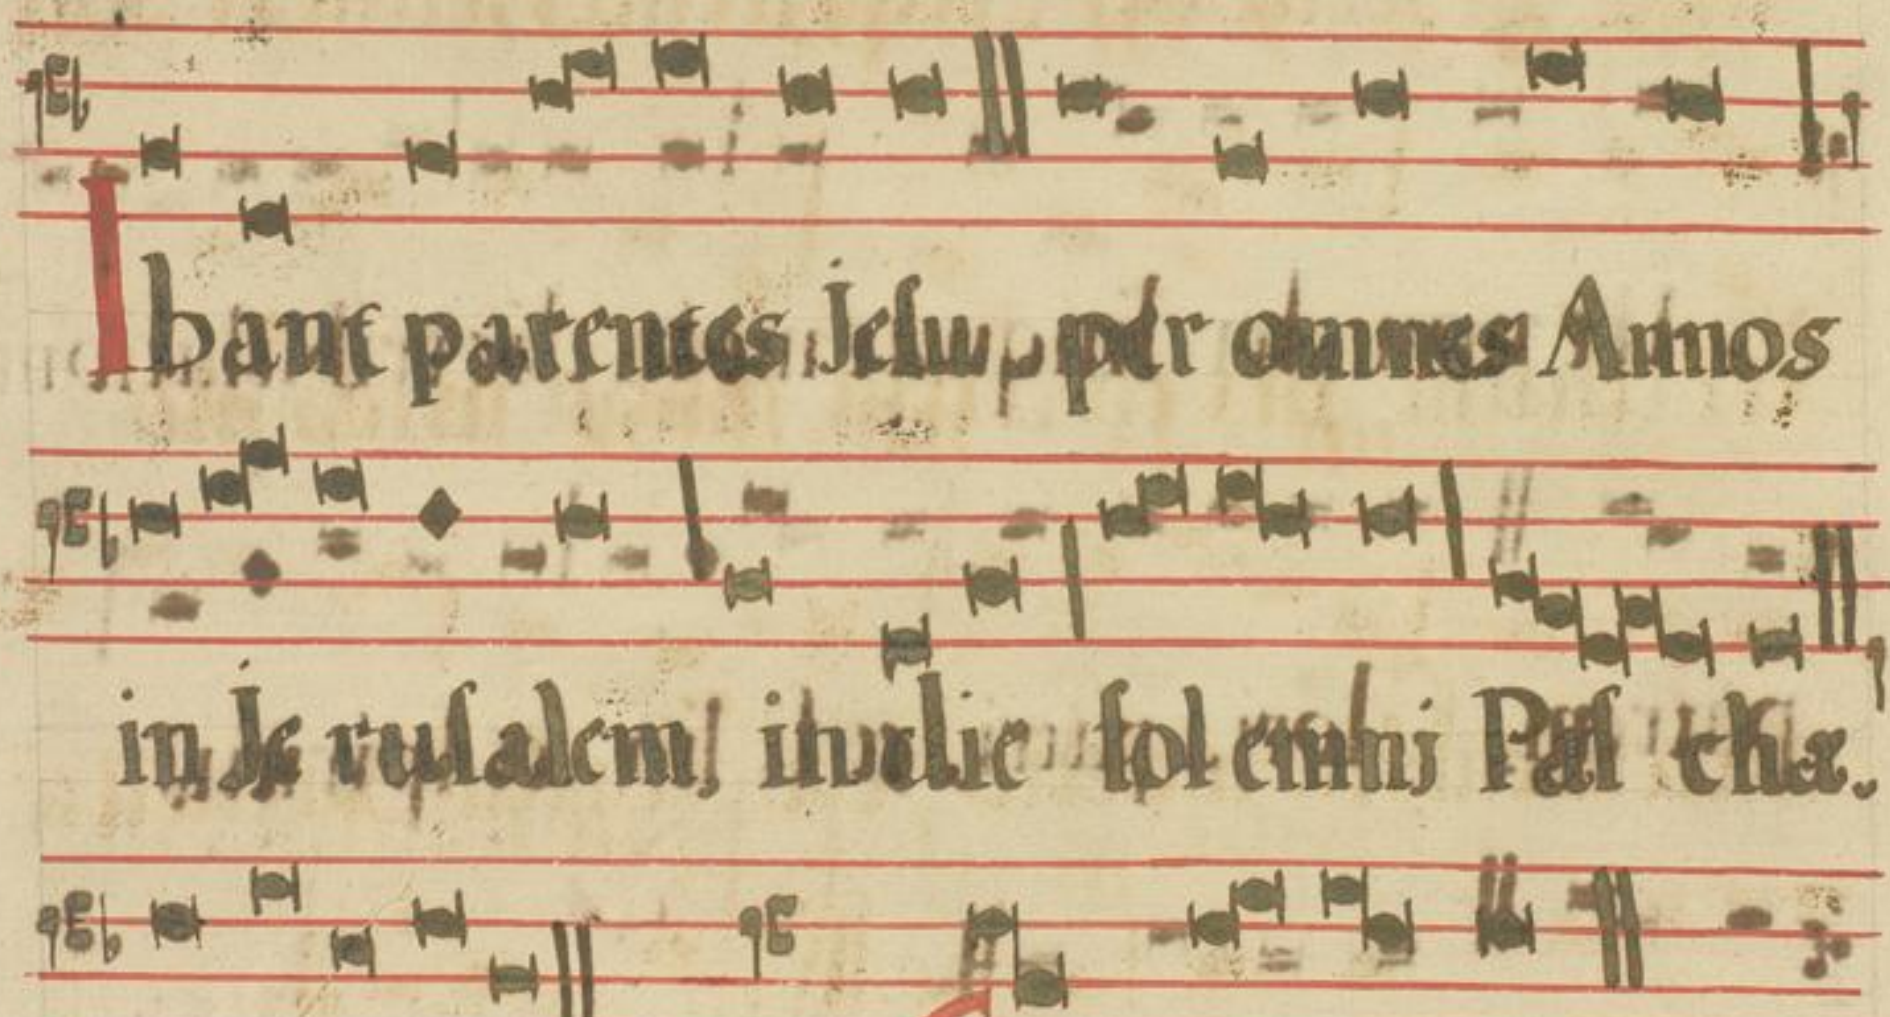 Ibant parentes Jesu, per omnes Annos
in Je rusalem, in die sol emnj Pas chæ.